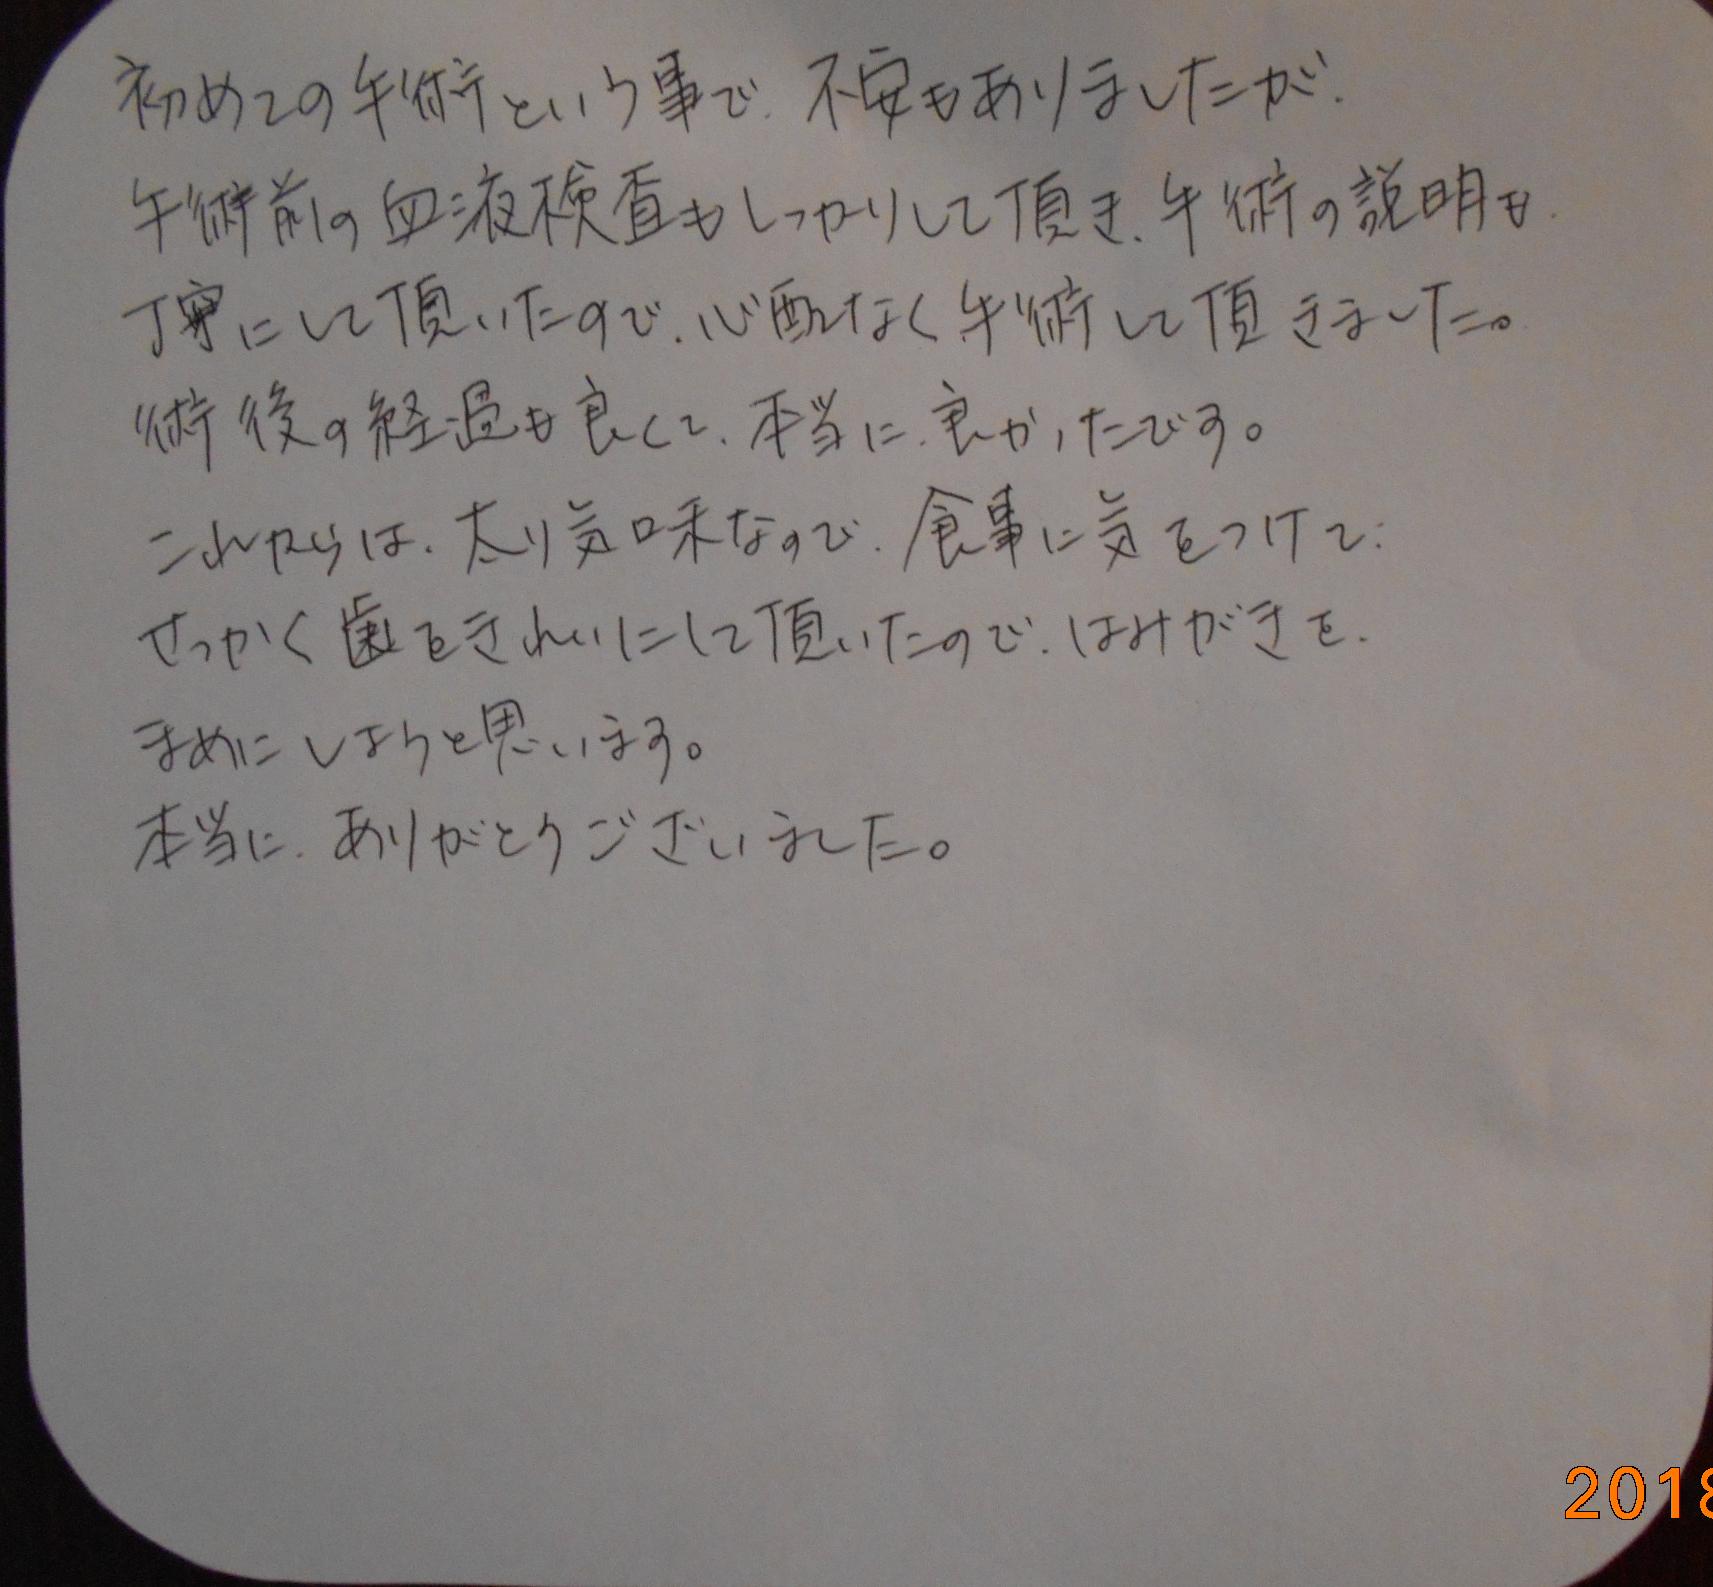 初めての手術という事で、不安もありましたが、
手術前の血液検査もしっかりして頂き、手術の説明も
丁寧にして頂いたので、心配なく手術して頂きました。
術後の経過も良くて、本当に良かったです。
これからは、太り気味なので、食事に気をつけて、
せっかく歯をきれいにして頂いたので、はみがきを、
まめにしようと思います。
本当に、ありがとうございました。
2018